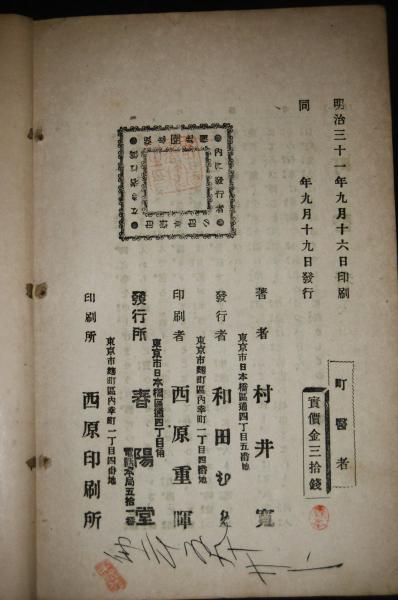 町醫者
實價金三拾錢
明治三十一年九月十六日印刷
同年九月十九日發行
著者 村井寛
東京市日本橋區通四丁目五番地
發行者 和田むめ
東京市麹町區内幸町一丁目四番地
印刷者 西原重暉
東京市日本橋區通四丁目角
發行所 春陽堂
電話本局五拾一番
東京市麹町區内幸町一丁目四番地
印刷所 西原印刷所
内に發行者